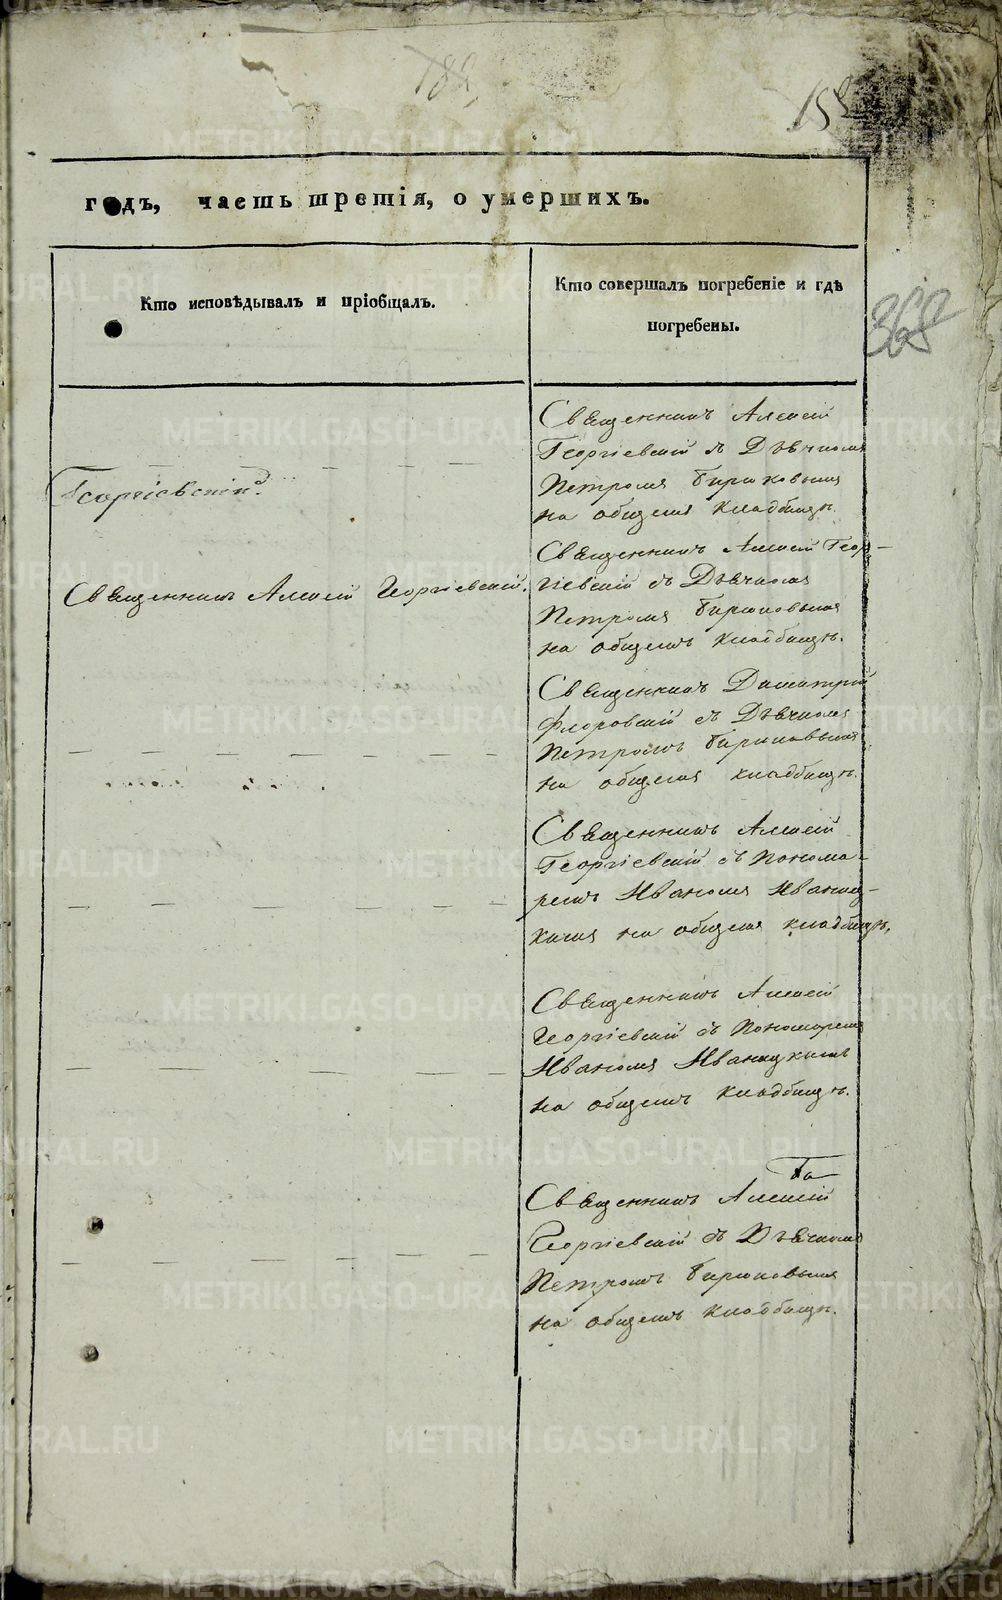 182
годъ, часть третія, о умершихъ.
Кто исповѣдывалъ и пріобщалъ.
Кто совершалъ погребеніе и гдѣ
погребены.
Георгіевскій.
Священникъ Алексѣй
Георгіевскій съ Дьячкомъ
Петромъ Бирюковымъ
на общемъ кладбищѣ.
Священникъ Алексѣй Георгіевскій.
Священникъ Алексѣй Геор-
гіевскій съ Дьячкомъ
Петромъ Бирюковымъ
на общемъ кладбищѣ.
Священникъ Димитрій
Флоровскій съ Дьячкомъ
Петромъ Бирюковымъ
на общемъ кладбищѣ.
Священникъ Алексѣй
Георгіевскій съ Понома-
ремъ Иваномъ Иваниц-
кимъ на общемъ кладбищѣ.
Священникъ Алексѣй
Георгіевскій съ Пономаремъ
Иваномъ Иваницкимъ
на общемъ кладбищѣ.
Священникъ Алексѣй
Георгіевскій съ Дьячкомъ
Петромъ Бирюковымъ
на общемъ кладбищѣ.
METRIKI.GASO-URAL.RU